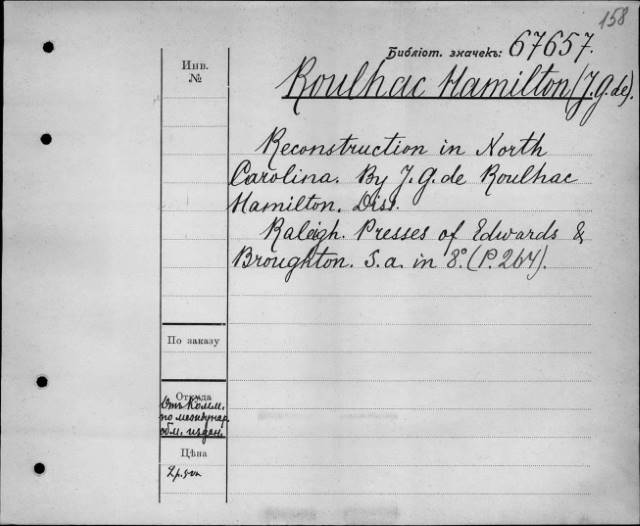 158
Библіот. значекъ: 67657.
Инв.
№
Roulhac Hamilton (J. G. de).
Reconstruction in North
Carolina. By J. G. de Roulhac
Hamilton. Diss.
Raleigh. Presses of Edwards &
Broughton. S. a. in 8º. (P. 264).
По заказу
Откуда
Отъ Комм.
по междунар.
обм. издан.
Цѣна
2 р.